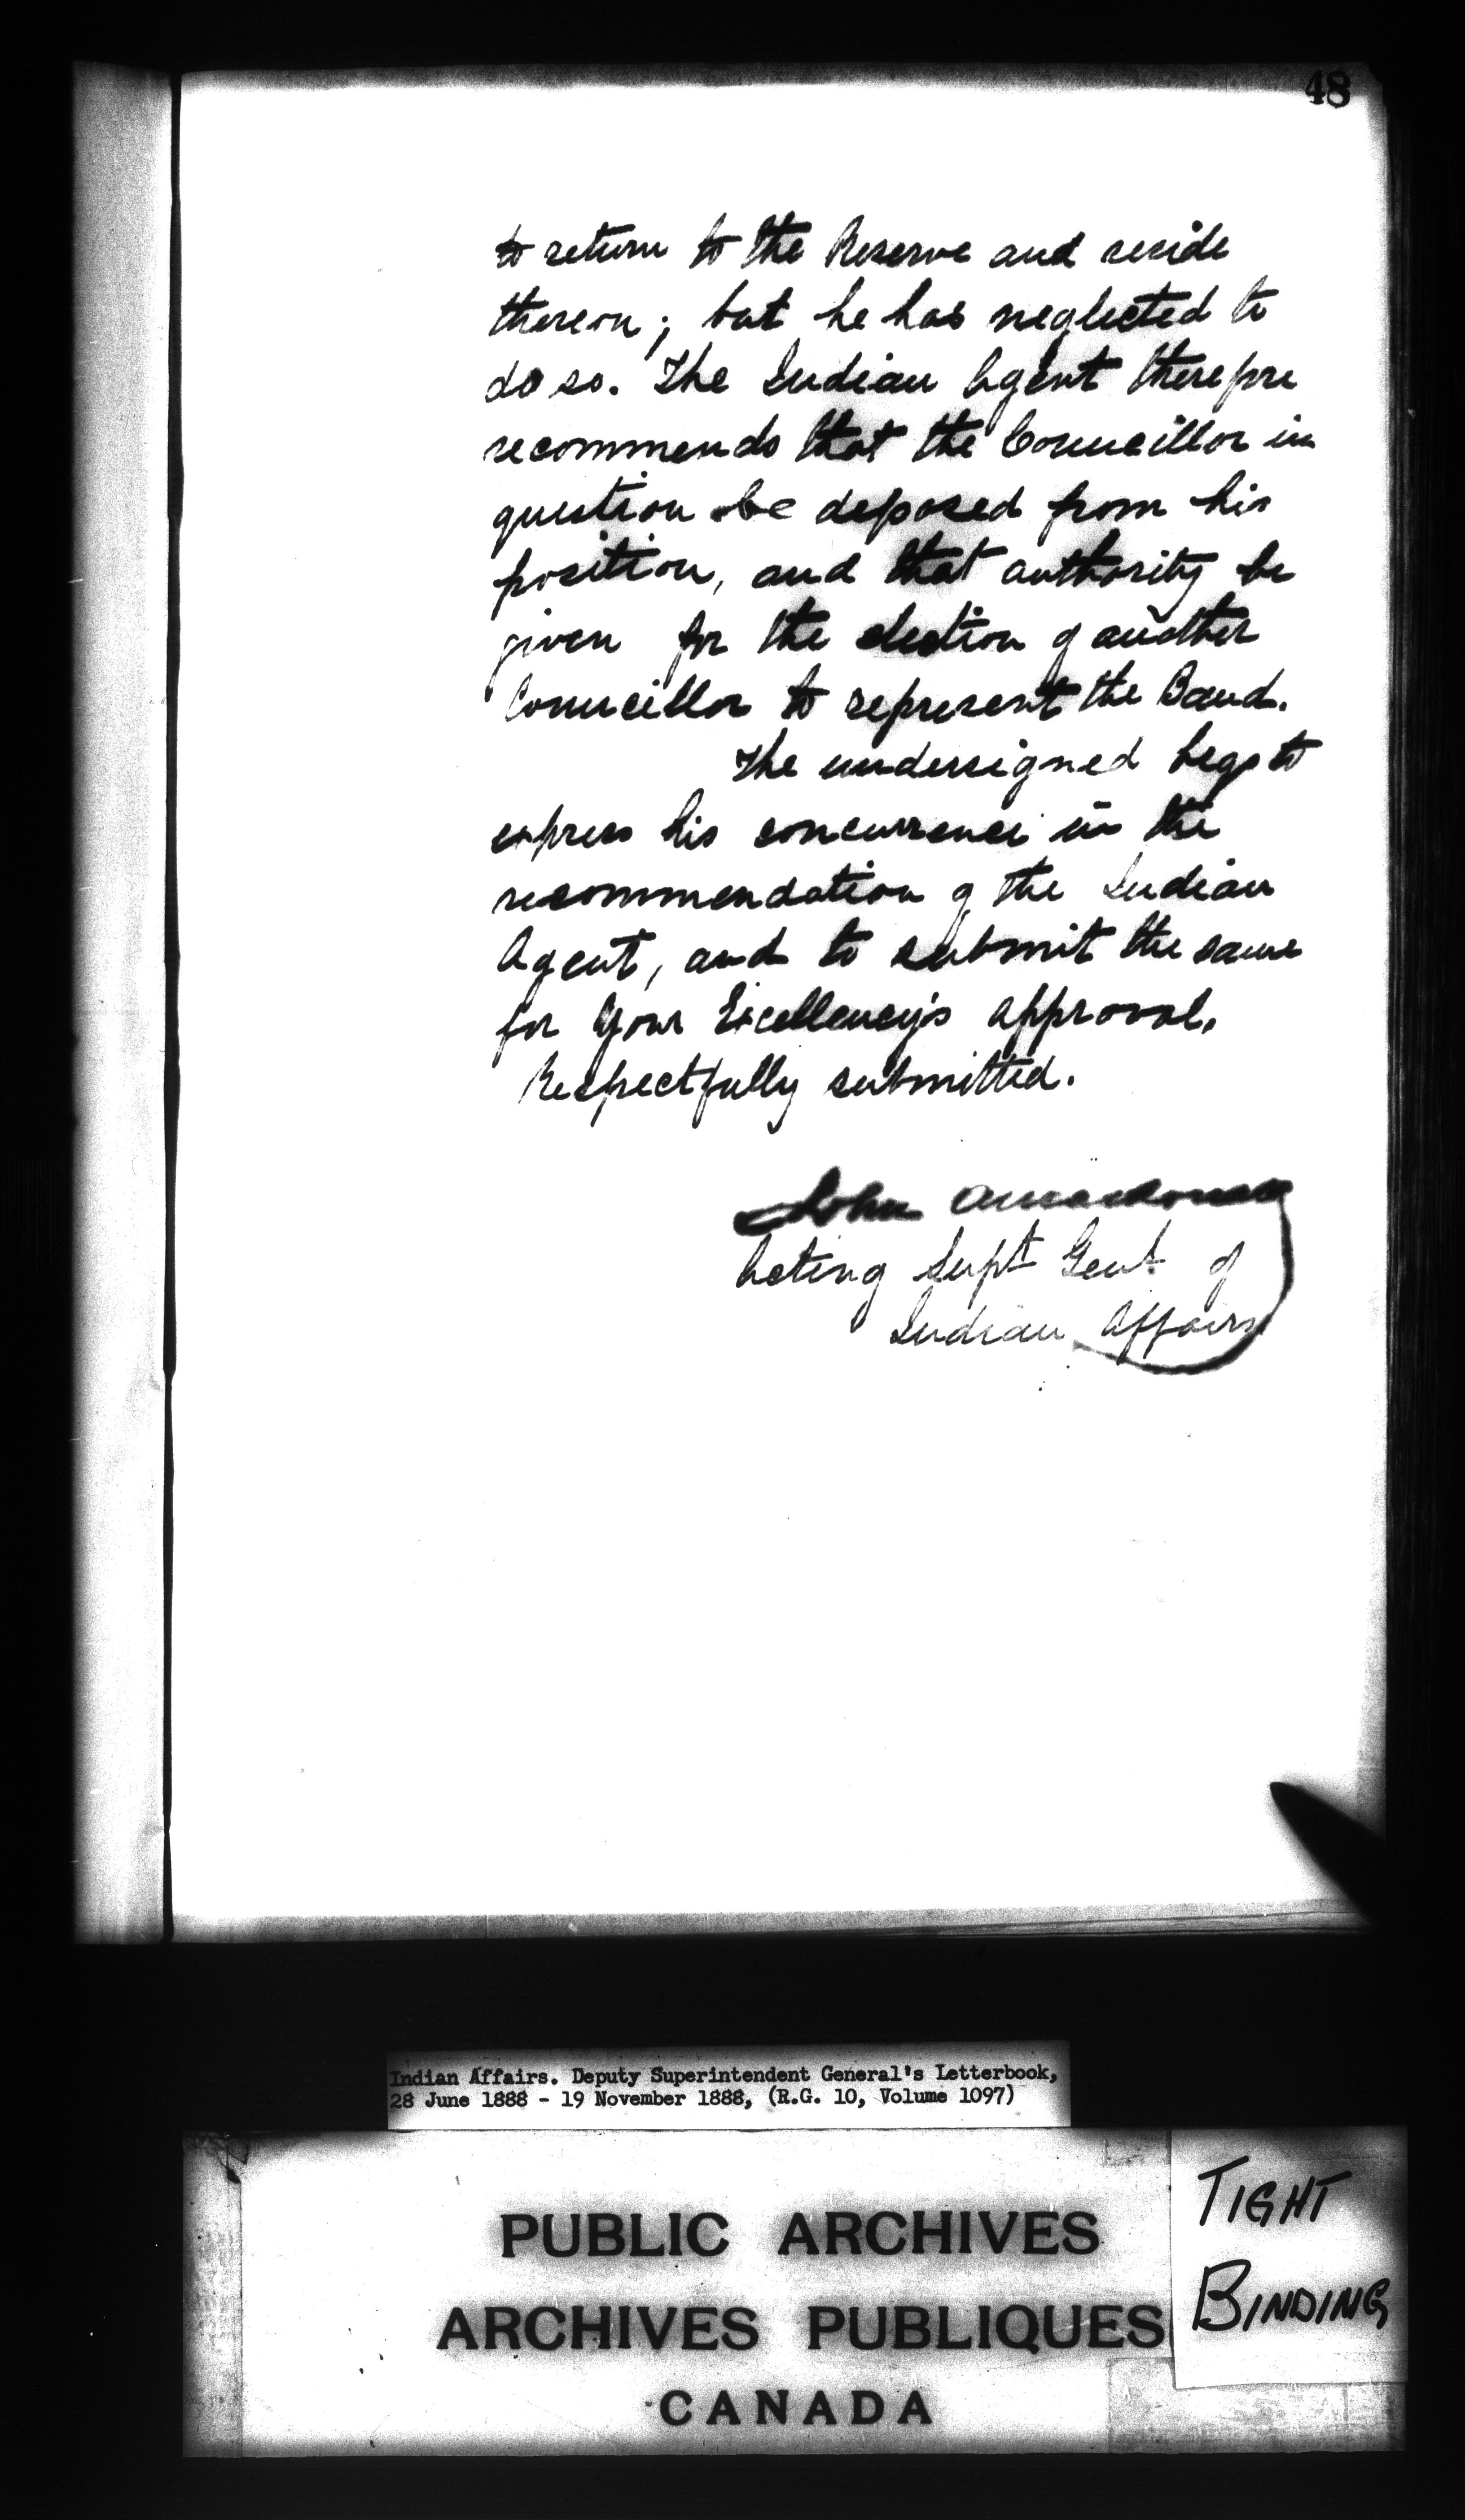 48
to return to the Reserve and reside
thereon; but he has neglected to
do so. The Indian Agent therefore
recommends that the Councillor in
question be deposed from his
position, and that authority be
given for the election of another
Councillor to represent the Band.
The undersigned begs to
express his concurrence in the
recommendation of the Indian
Agent, and to submit the same
for Your Excellency's approval.
Respectfully submitted.
John
Acting Supt Genl of
Indian Affairs
Indian Affairs. Deputy Superintendent General's Letterbook,
28 June 1888 - 19 November 1888, (R.G. 10, Volume 1097)
PUBLIC ARCHIVES
ARCHIVES PUBLIQUES
CANADA
TIGHT
BINDING